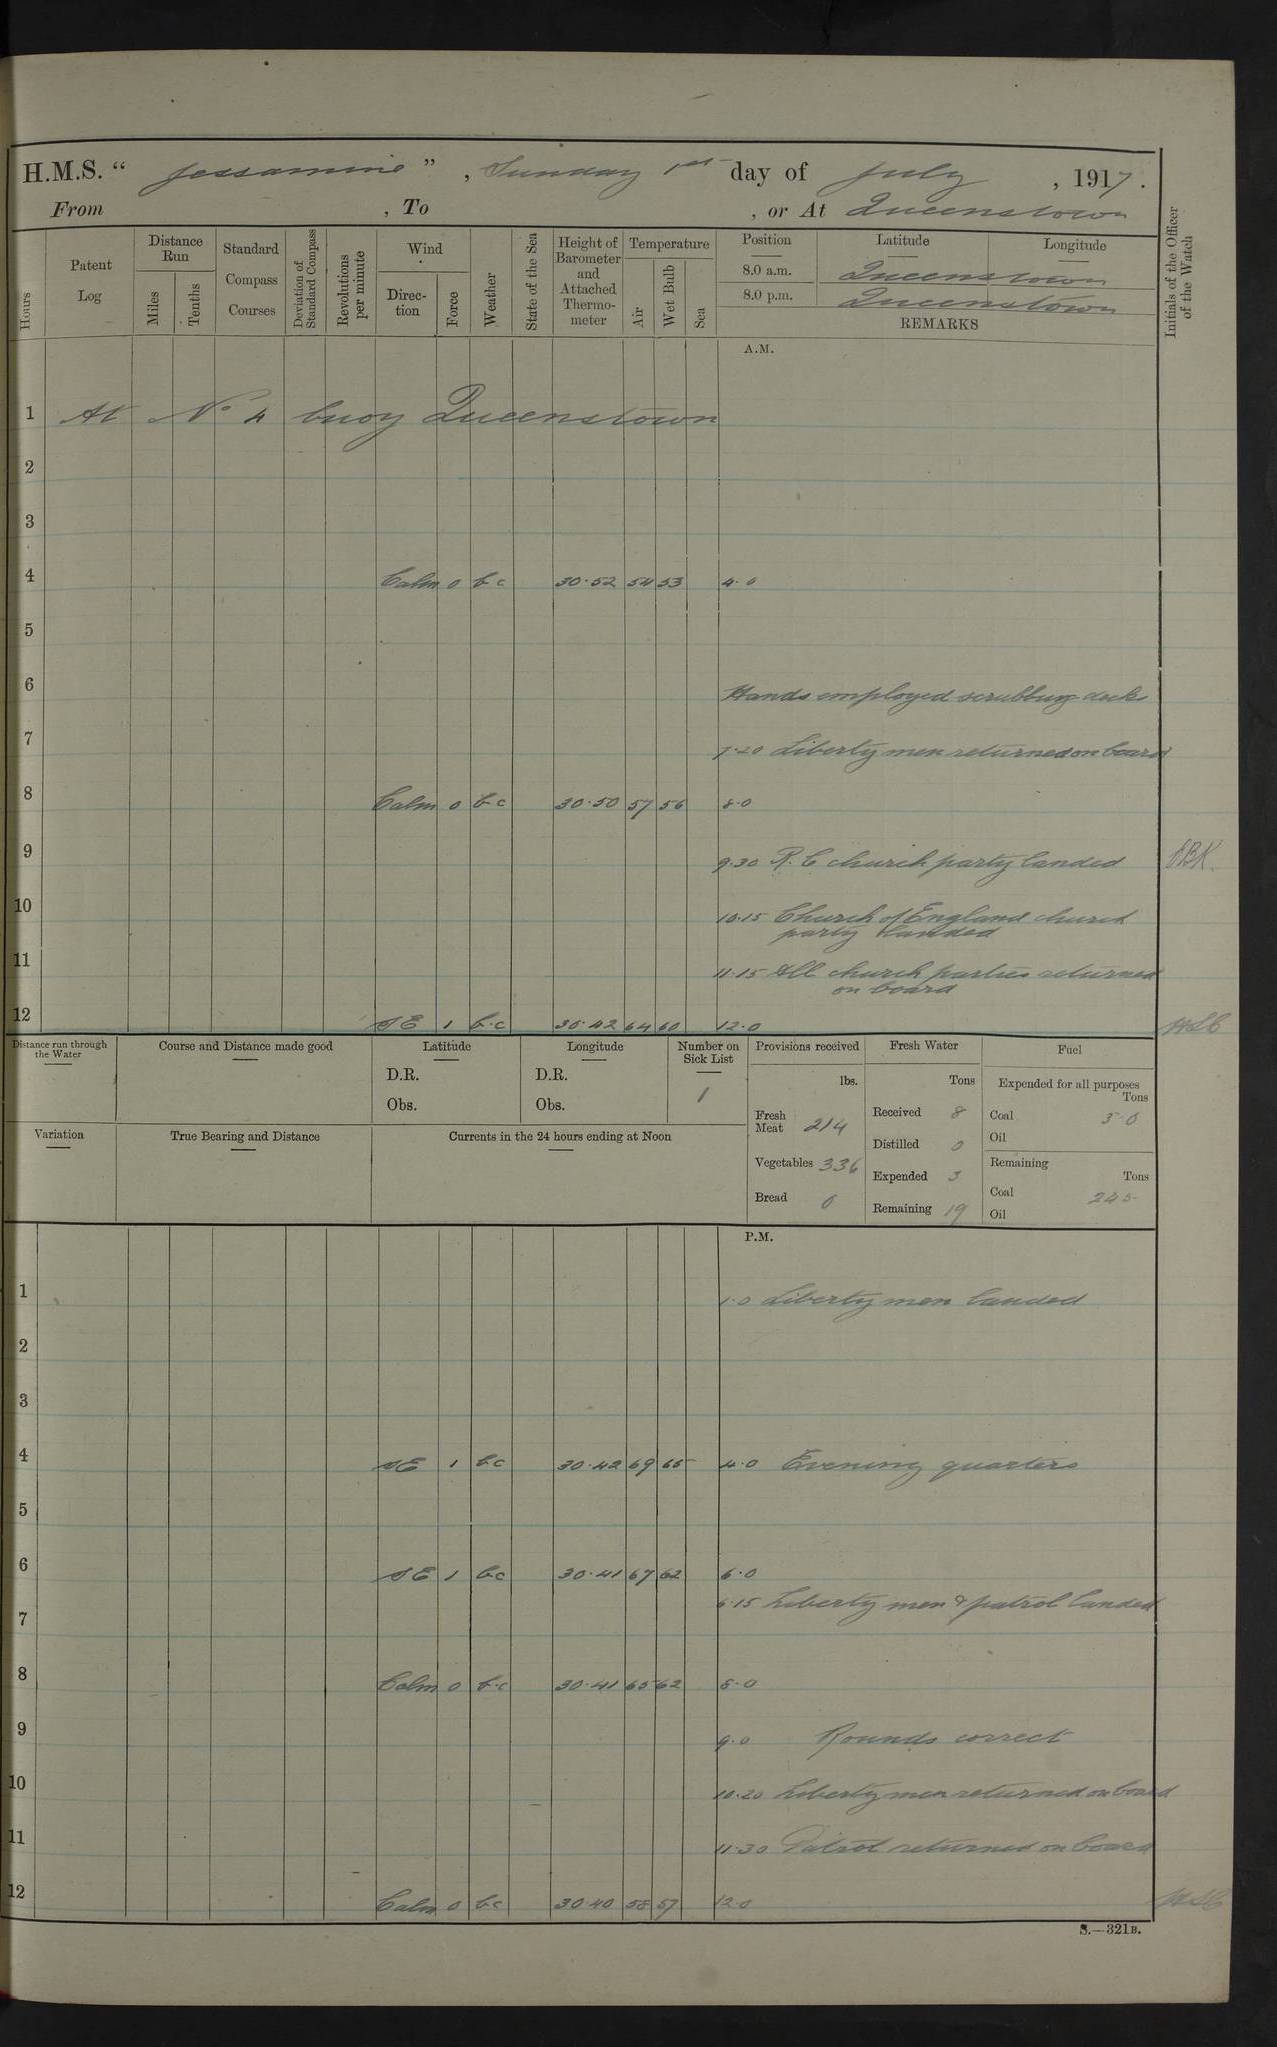 H.M.S. “ Jessamine ” , Sunday 1st day of July , 1917.
From , To , or At Queenstown
Hours
Patent Log
Distance Run
Miles
Tenths
Standard Compass Courses
Deviation of Standard Compass
Revolutions per minute
Wind
Direc-tion
Force
Weather
State of the Sea
Height of Barometer and Attached Thermo-meter
Temperature
Air
Wet Bulb
Sea
Position Latitude Longitude
8.0 a.m. Queenstown
8.0 p.m. Queenstown
REMARKS
Initials of the Officer of the Watch
A.M.
1 At No 4 buoy Queenstown
2
3
4 Calm 0 b.c 30.52 54 53 4.0
5
6 Hands employed scrubbing decks
7 7.20 Liberty men returned on board
8 Calm 0 b.c 30.50 57 56 8.0
9 9.30 R.C church party landed
10 10.15 Church of England church
party landed
11 11.15 All church parties returned
on board
12 SE 1 b.c 30.42 64 60 12.0
Distance run through the Water
Course and Distance made good
Latitude
D.R.
Obs.
Longitude
D.R.
Obs.
Number on Sick List
1
Provisions received
lbs.
Fresh Meat 214
Vegetables 336
Bread 0
Fresh Water
Tons
Received 8
Distilled 0
Expended 3
Remaining 19
Fuel
Expended for all purposes
Tons
Coal 5.0
Oil
Remaining
Tons
Coal 245
Oil
Variation
True Bearing and Distance
Currents in the 24 hours ending at Noon
P.M.
1 1.0 Liberty men landed
2
3
4 SE 1 b.c 30.42 69 65 4.0 Evening quarters
5
6 SE 1 b.c 30.41 67 62 6.0
6.15 Liberty men & patrol landed
7
8 Calm 0 b.c 30.41 65 62 8.0
9 9.0 Rounds correct
10 10.20 Liberty men returned on board
11 11.30 Patrol returned on board
12 Calm 0 b.c 30.40 58 57 12.0
S.—321B.